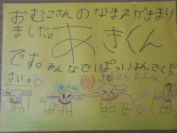 おむこさんのなまえがきまり
ました。あきくん
です。みんなでいっぱいよんでくだ
さい。